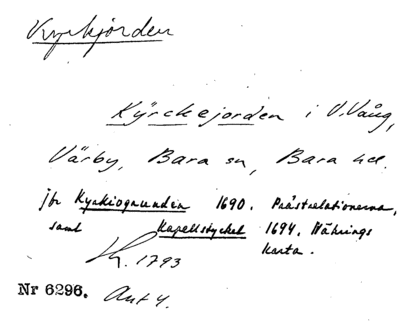 Kyrkjorden
Kyrckejorden i V. Vång,
Värby, Bara sn, Bara hd.
jfr Kyrkiogrunden 1690. Prästrelationerna,
samt Kapellstycket 1694, Nährings
karta.
K. 1793
Nr 6296. Ant 4.